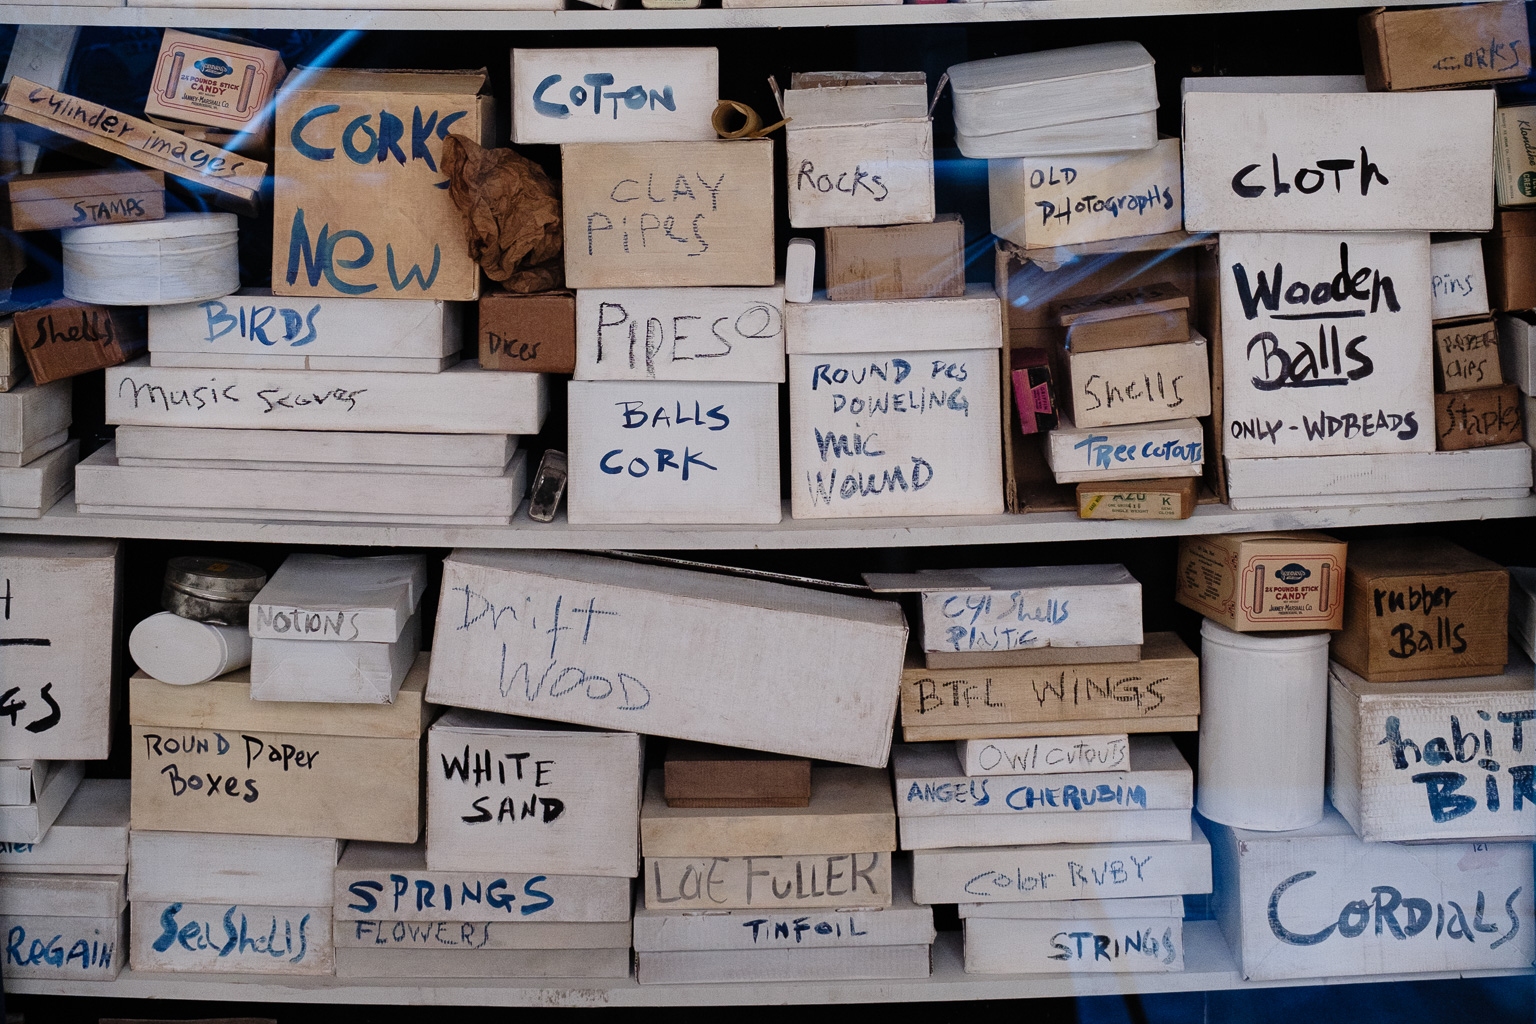 24 POUNDS STICK
CANDY
JANNEY-MARSHALL CO.
Cylinder images
STAMPS
CORKS
NEW
COTTON
CLAY
PIPES
ROCKS
OLD
PHOTOGRAPHS
CLOTH
Shells
BIRDS
Dices
PIPES
Music Scores
BALLS
CORK
ROUND PCS
DOWELING
MIC
WOUND
Shells
Tree cutouts
AZO
K
Wooden
Balls
ONLY - WDBEADS
Pins
PAPER
clips
Staples
NOTIONS
Drift
WOOD
Cyl Shells
Plastic
24 POUNDS STICK
CANDY
JANNEY-MARSHALL CO.
rubber
Balls
BTFL WINGS
OWL CUTOUTS
ANGELS CHERUBIM
habiT
BIR
ROUND Paper
Boxes
WHITE
SAND
LOIE FULLER
Color RUBY
CORDIALS
REGAIN
SeaShells
SPRINGS
FLOWERS
TINFOIL
STRINGS